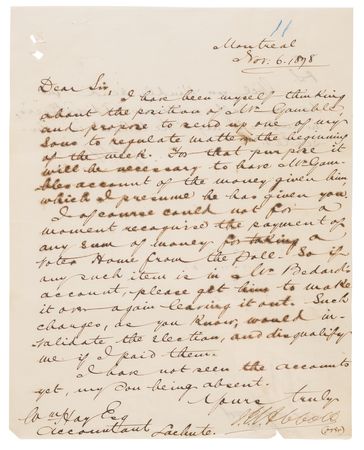 11
Montreal
Nov. 6. 1878
Dear Sir,
I have been myself thinking
about the position of Mr Gamble
and propose to send up one of my
Sons to regulate matters the beginning
of the week. For that purpose it
will be necessary to have Mr Gam-
bles account of the money given him
which I presume he has given you
I of course could not for a
moment recognize the payment of
any sum of money for taking a
voter Home from the Poll. So if
any such item is in Mr Bedard's
account, please get him to make
it over again leaving it out. Such
charges, as you know, would in-
validate the election, and disqualify
me if I paid them.
I have not seen the accounts
yet, my Son being absent.
Yours truly
J.J.C. Abbott
Wm Hay Esq
Accountant Lachute.